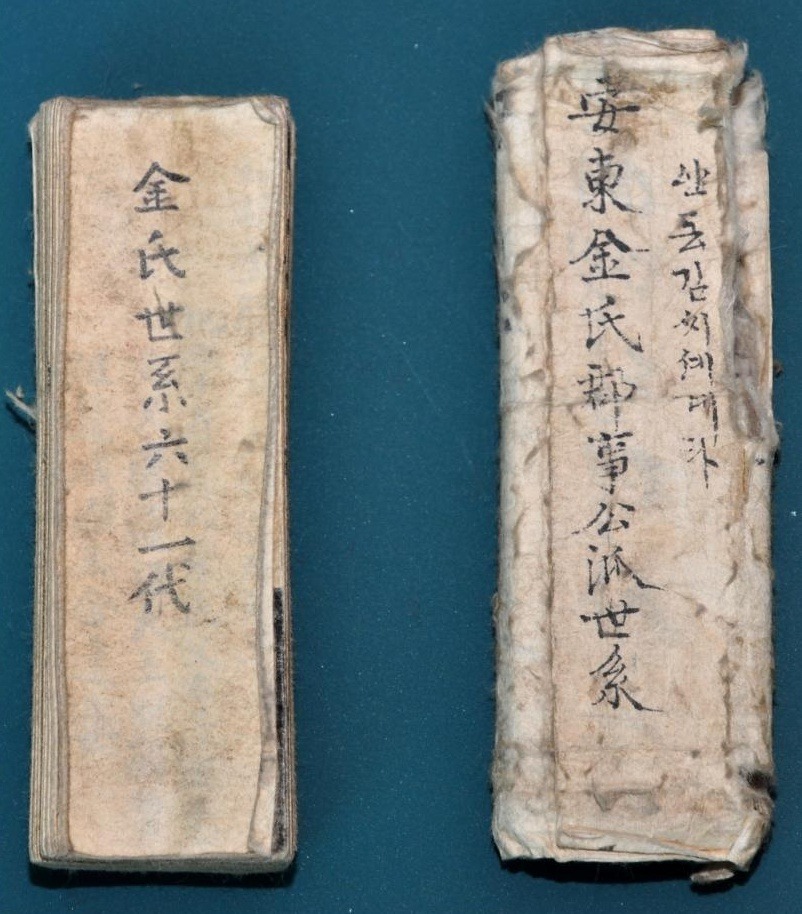 안동김씨
安東金氏郡事公派世系
金氏世系六十一代